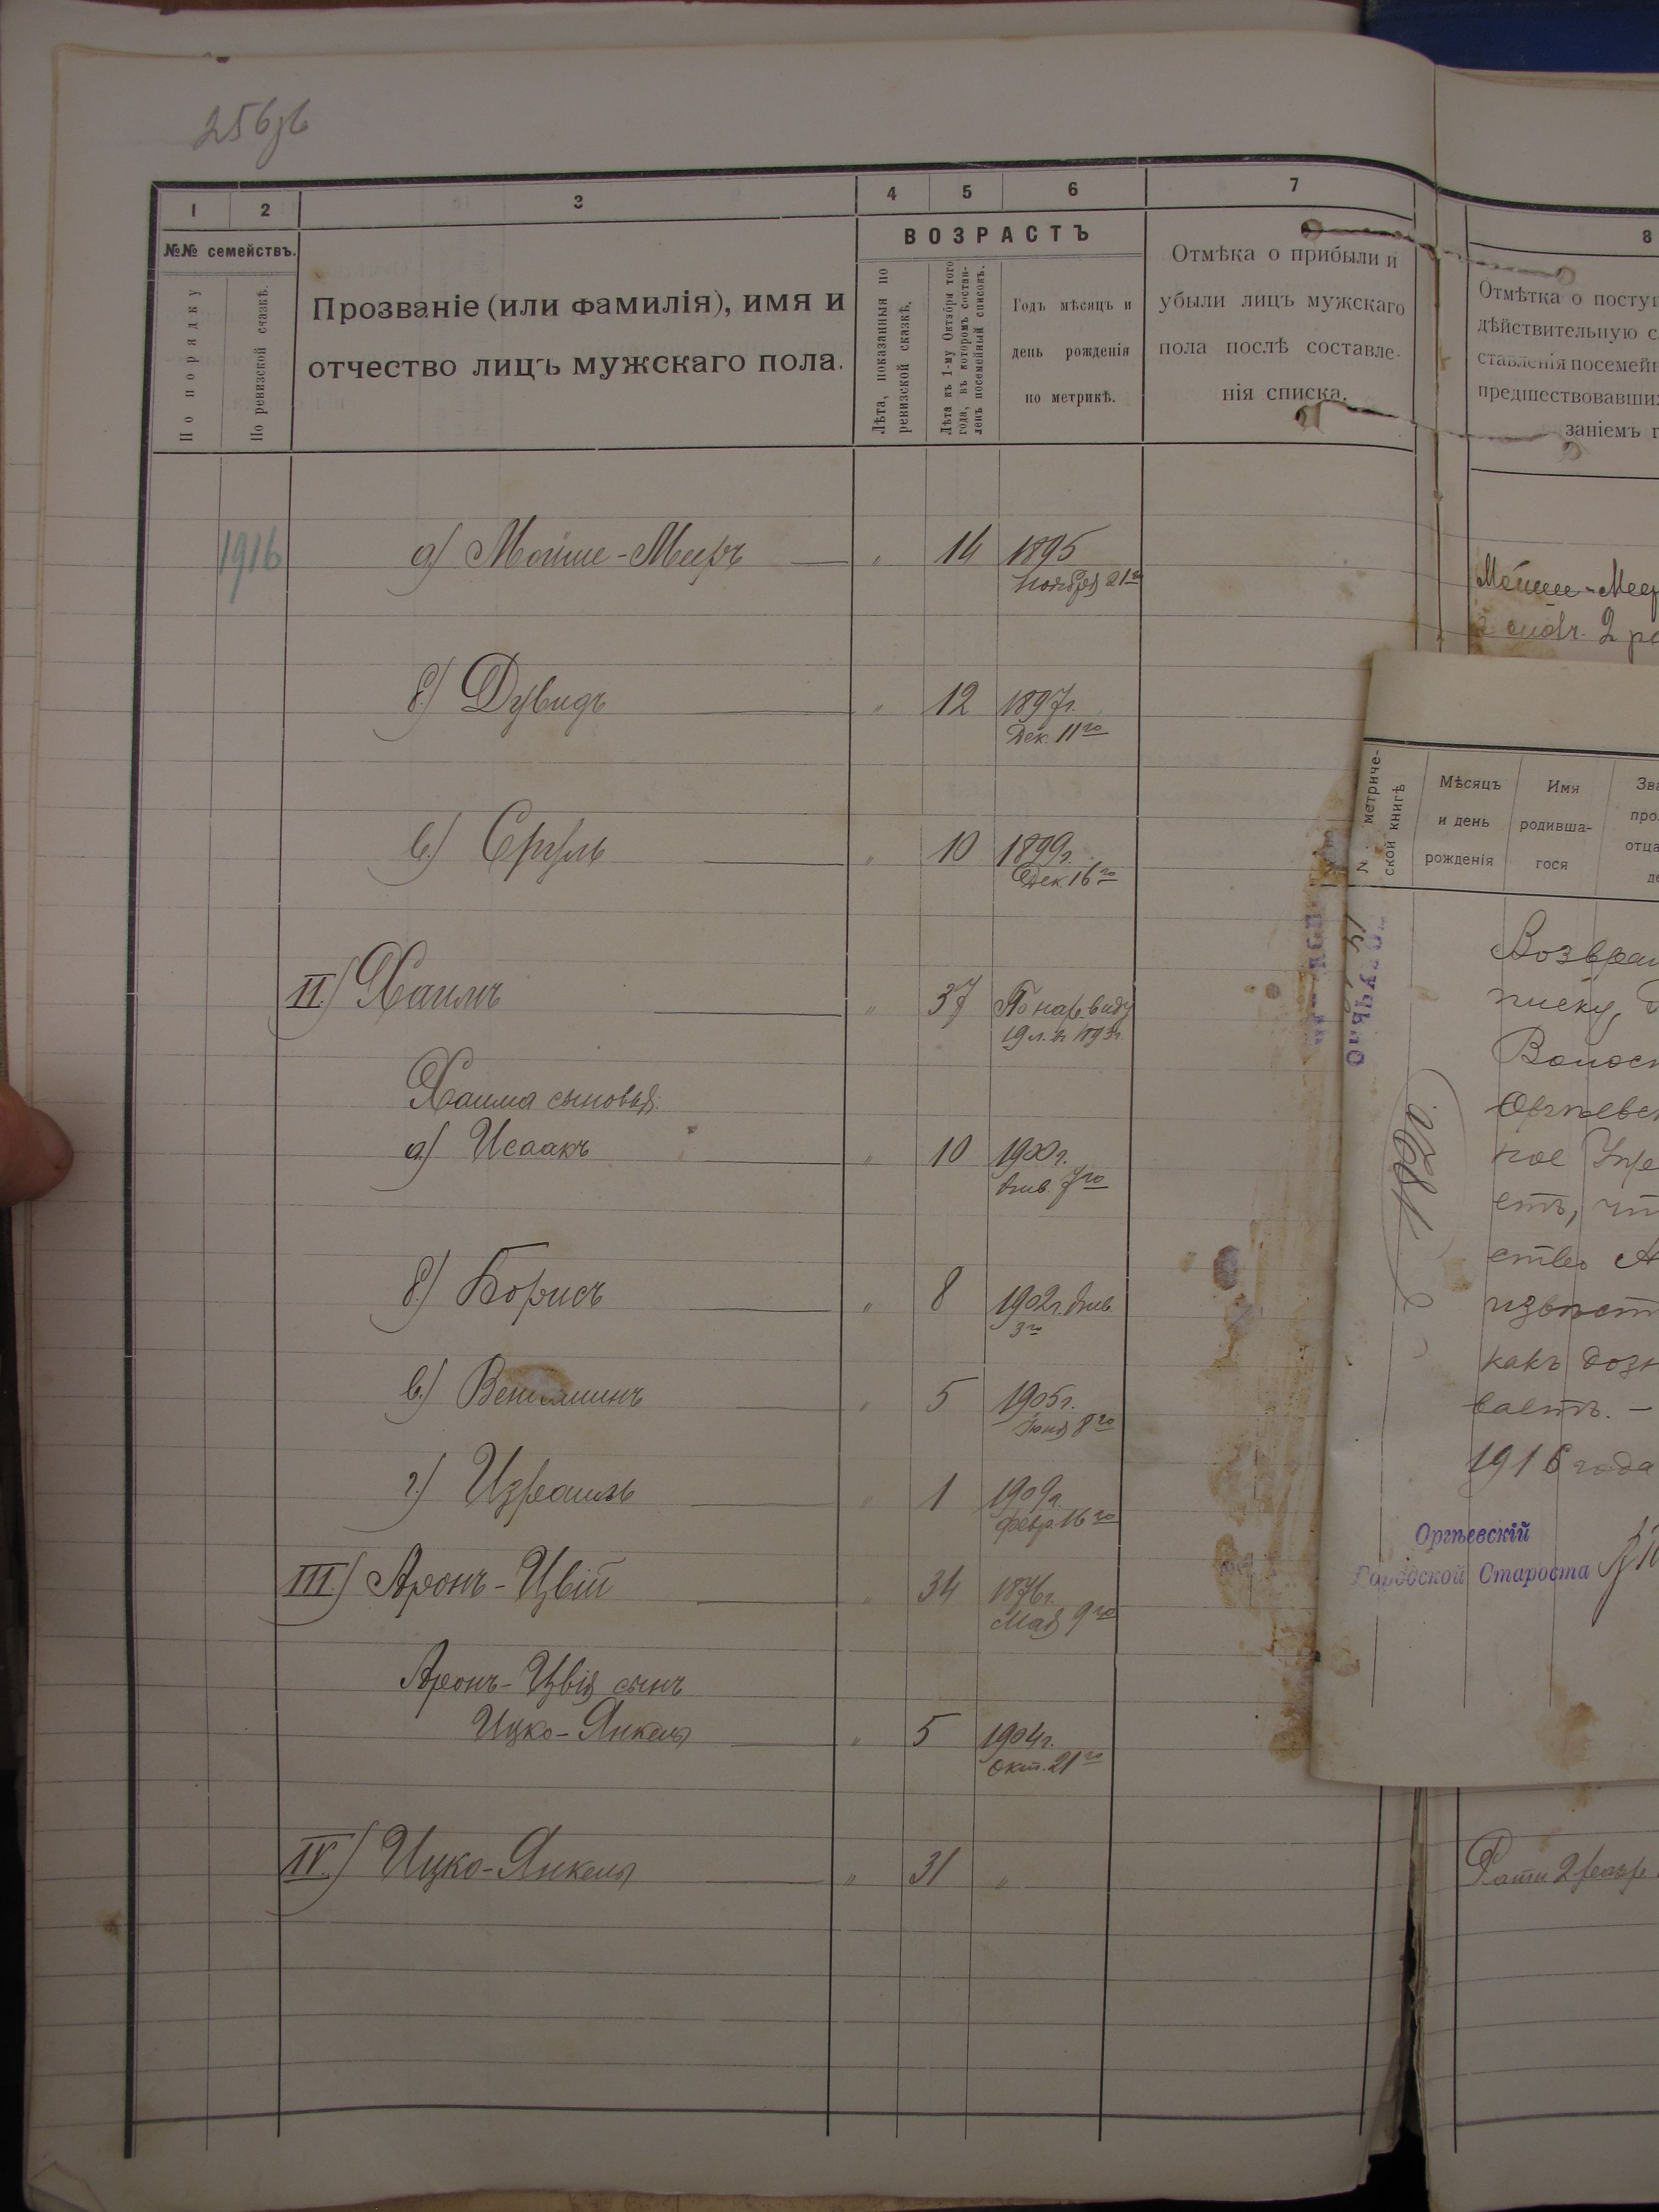 256об
1 2 3 4 5 6 7
№№ семействъ.
По порядку
По ревизской сказкѣ.
Прозваніе (или фамилія), имя и
отчество лицъ мужскаго пола.
ВОЗРАСТЪ
Лѣта, показанныя по
ревизской сказкѣ.
Лѣта къ 1-му Октября того
года, въ которомъ состав-
ленъ посемейный списокъ.
Годъ мѣсяцъ и
день рожденія
по метрикѣ.
Отмѣка о прибыли и
убыли лицъ мужскаго
пола послѣ составле-
нія списка.
1916 а) Мойше-Мееръ " 14 1895
Ноября 21го
б) Дувидъ " 12 1897г.
Дек. 11го
в) Сруль " 10 1899г.
Дек. 16го
II) Хаимъ " 37 По нар. виду
19 л. въ 1893г.
Хаима сыновья:
а) Исаакъ " 10 1900г.
Янв. 7го
б) Борисъ " 8 1902г. Янв.
3го
в) Веніаминъ " 5 1905г.
Іюня 8го
г) Израиль " 1 1909г.
Февр. 16го
III) Аронъ-Цвій " 34 1876г.
Мая 9го
Аронъ-Цвія сынъ
Ицко-Янкель " 5 1904г.
Окт. 21го
IV) Ицко-Янкель " 31 "
8
Отмѣтка о поступ
дѣйствительную с
ставленія посемейн
предшествовавши
заніемъ г
Мойше-Меер
2 ра
метриче-
ской книгѣ
Мѣсяцъ
и день
рожденія
Имя
родивша-
гося
Зва
про
отца
де
Возвра
писку,
Волост
Оргѣевск
ное Упр
етъ, чт
ство
извѣст
какъ дозн
ваетъ. –
1916 года
Оргѣевскій
Городской Староста
Рати 2 разр